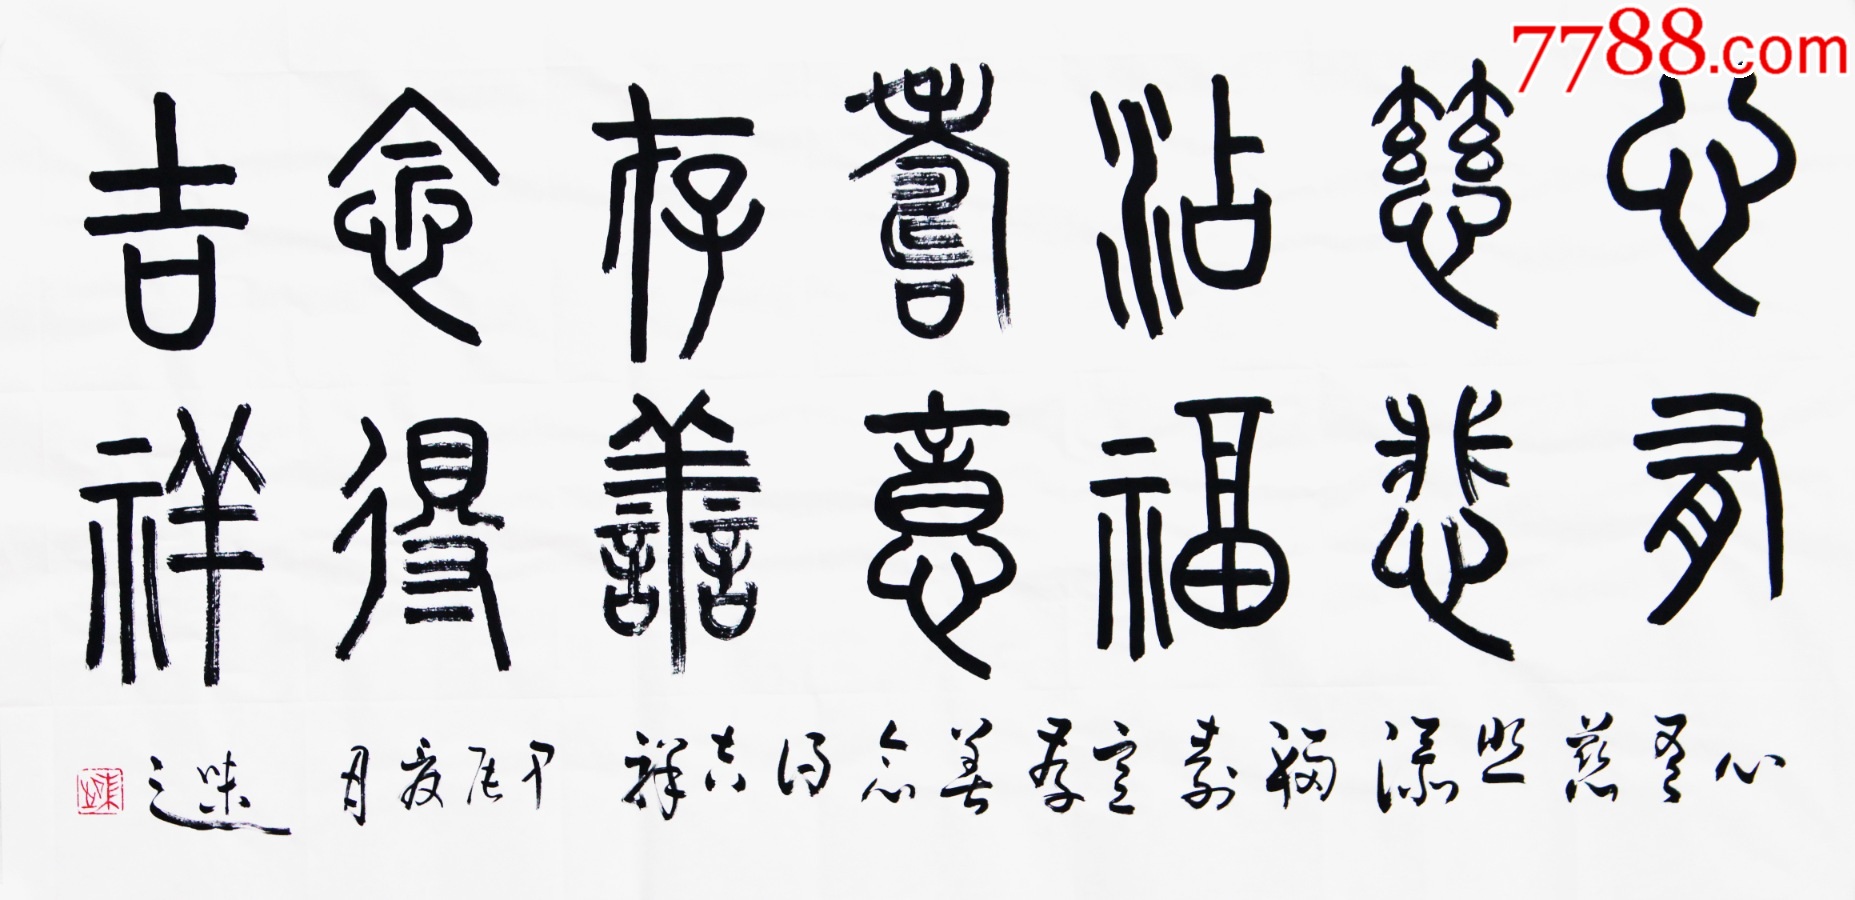 7788.com
心有
慈悲
沾福
寿意
存善
念得
吉祥
心有慈悲添福寿意存善念得吉祥甲辰夏月味之